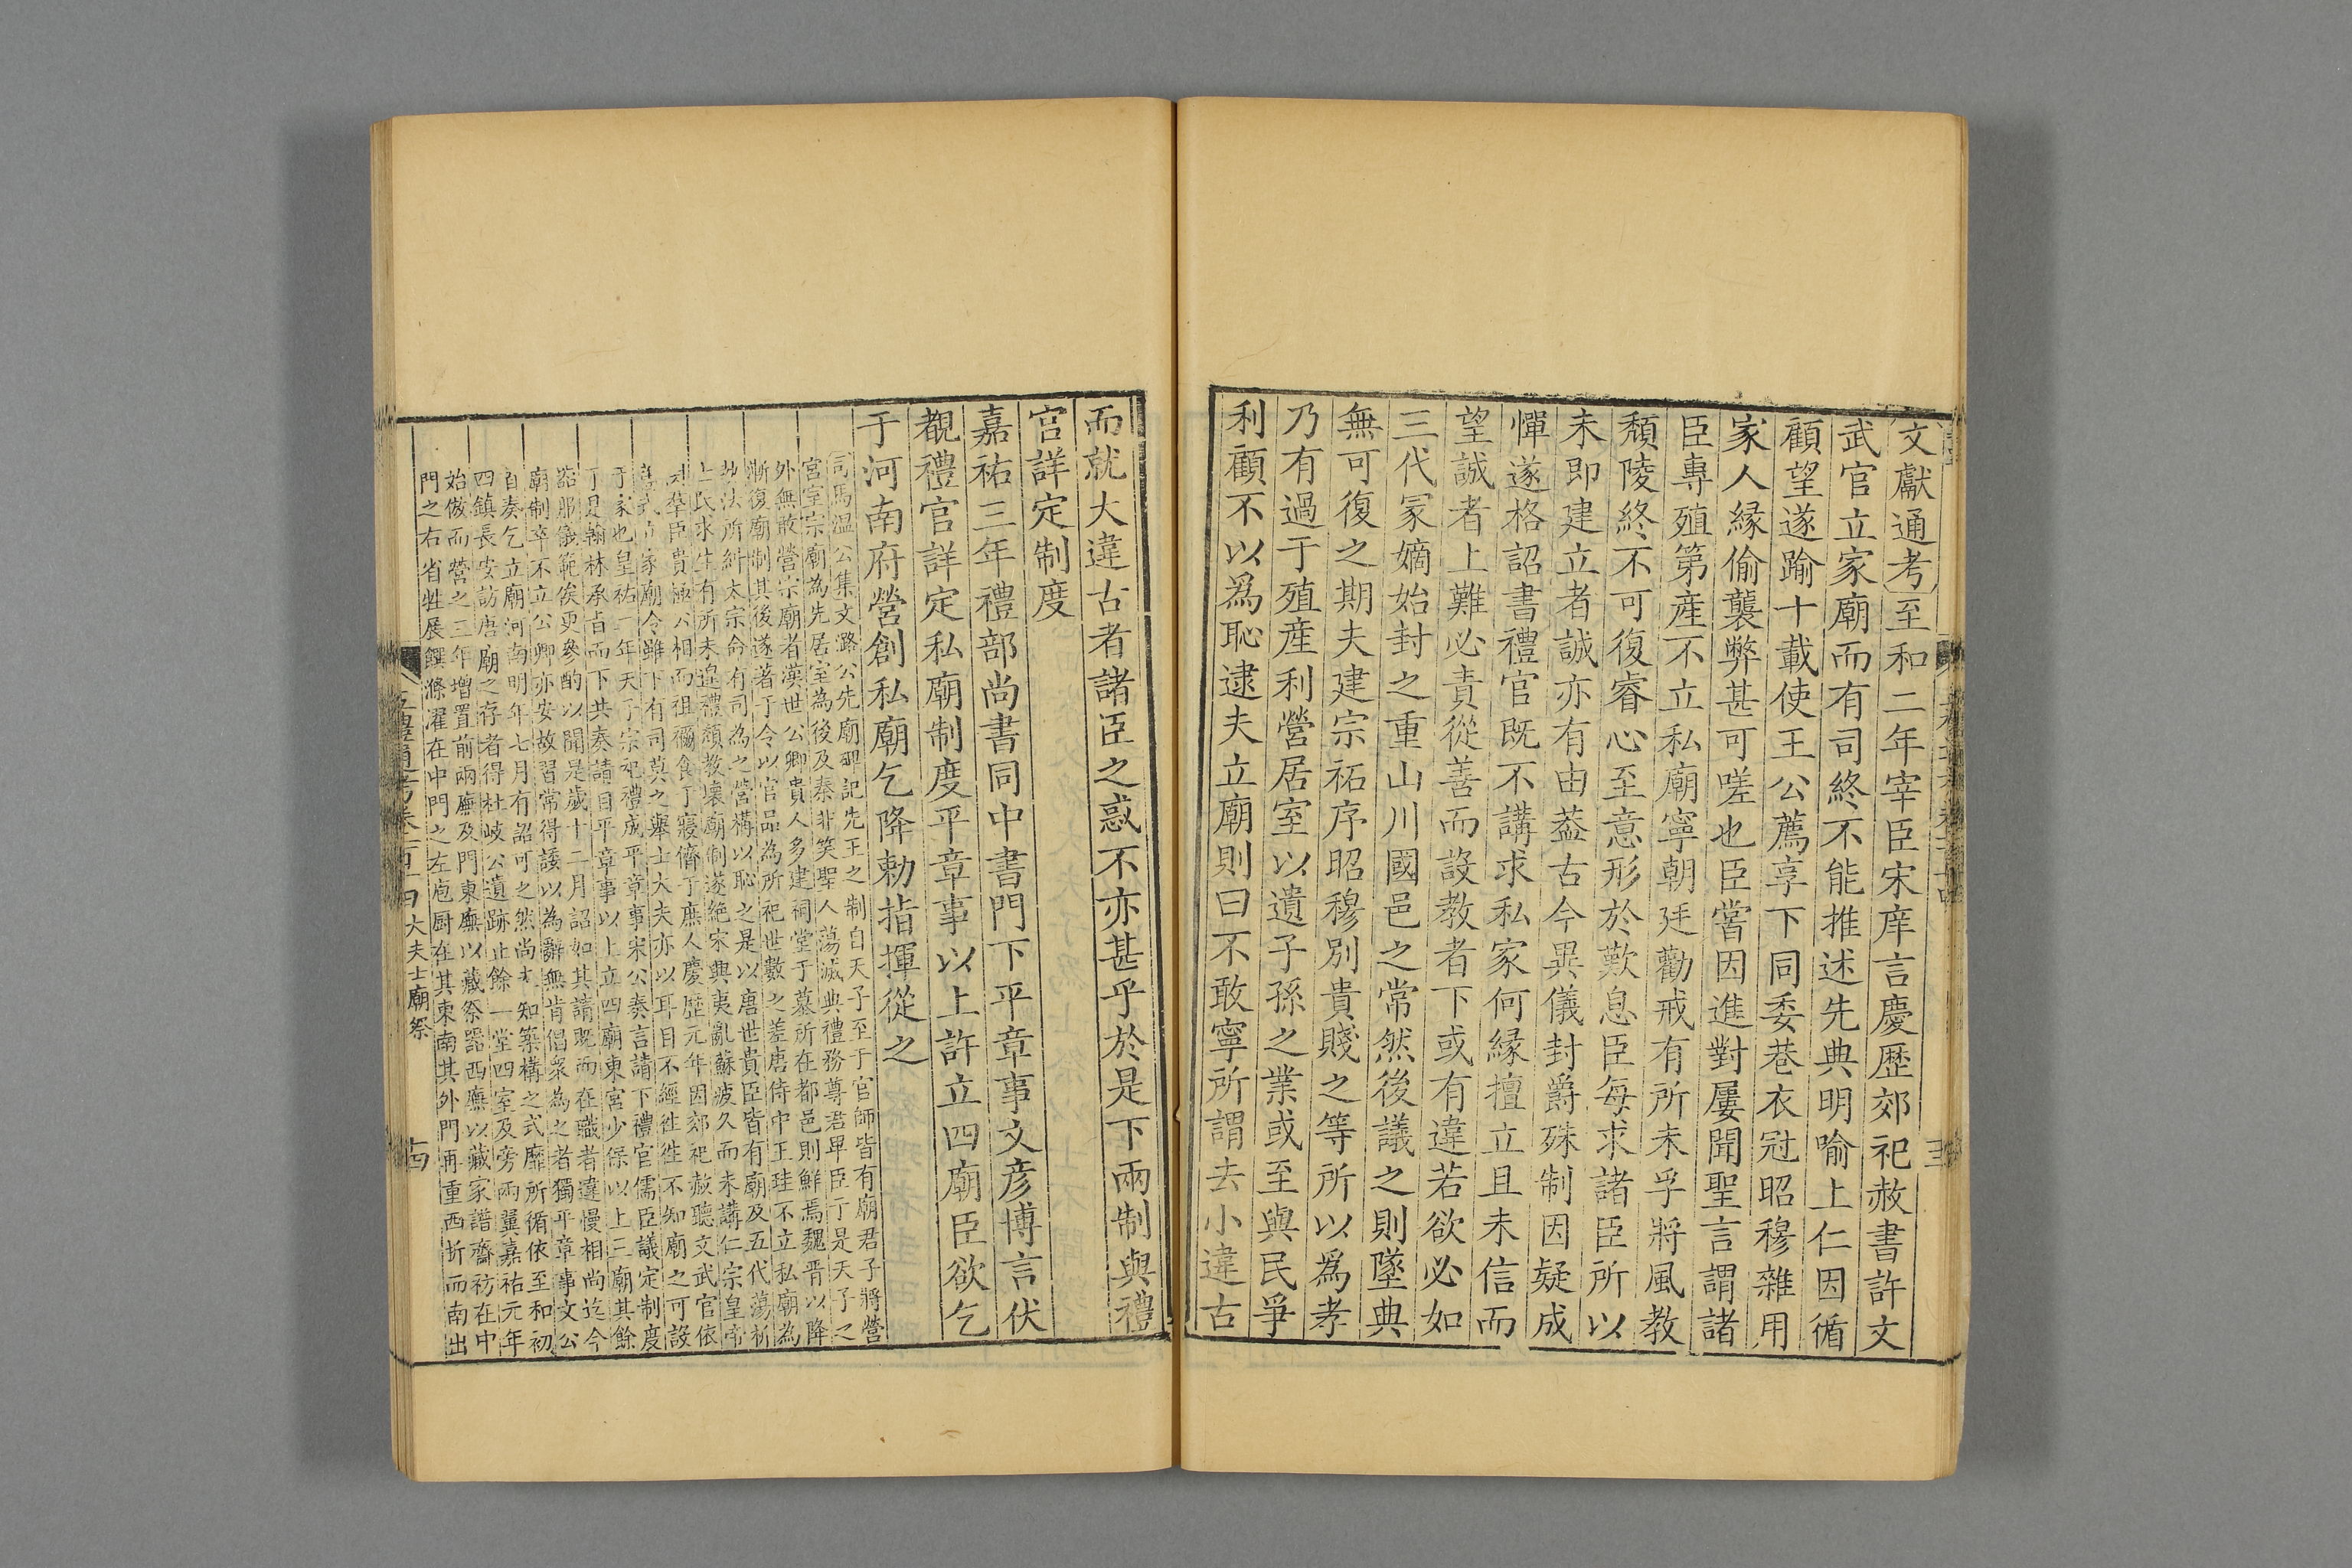 文獻通考至和二年宰臣宋庠言慶歷郊祀赦書許文
武官立家廟而有司終不能推述先典明喻上仁因循
顧望遂踰十載使王公薦享下同委巷衣冠昭穆雜用
家人緣偷襲弊甚可嗟也臣嘗因進對屢聞聖言謂諸
臣專殖第產不立私廟寧朝廷勸戒有所未孚將風教
頹陵終不可復睿心至意形於歎息臣每求諸臣所以
未即建立者誠亦有由葢古今異儀封爵殊制因疑成
憚遂格詔書禮官既不講求私家何緣擅立且未信而
望誠者上難必責從善而設教者下或有違若欲必如
三代冢嫡始封之重山川國邑之常然後議之則墜典
無可復之期夫建宗祏序昭穆別貴賤之等所以爲孝
乃有過于殖產利營居室以遺子孫之業或至與民爭
利顧不以爲恥逮夫立廟則曰不敢寧所謂去小違古
而就大違古者諸臣之惑不亦甚乎於是下兩制與禮
官詳定制度
嘉祐三年禮部尚書同中書門下平章事文彥博言伏
覩禮官詳定私廟制度平章事以上許立四廟臣欲乞
于河南府營創私廟乞降勅指揮從之
司馬温公集文潞公先廟碑記先王之制自天子至于官師皆有廟君子將營
宮室宗廟為先居室為後及秦非笑聖人蕩滅典禮務尊君卑臣于是天子之
外無敢營宗廟者漢世公卿貴人多建祠堂于墓所在都邑則鮮焉魏晋以降
漸復廟制其後遂著于令以官品為所祀世數之差唐侍中王珪不立私廟為
執法所糾太宗命有司為之營構以恥之是以唐世貴臣皆有廟及五代蕩析
士民求生有所未遑禮頹教壞廟制遂絶宋興夷亂蘇疲久而未講仁宗皇帝
閔羣臣貴極公相而祖禰食于寢儕于庶人慶歷元年因郊祀赦聽文武官依
舊式立家廟令雖下有司莫之舉士大夫亦以耳目不經往往不知廟之可設
于家也皇祐二年天子宗祀禮成平章事宋公奏言請下禮官儒臣議定制度
于是翰林承旨而下共奏請自平章事以上立四廟東宮少保以上三廟其餘
器服儀範俟更參酌以聞是歲十二月詔如其請既而在職者違慢相尚迄今
廟制卒不立公卿亦安故習常得諉以為辭無肯倡衆為之者獨平章事文公
首奏乞立廟河南明年七月有詔可之然尚未知築構之式靡所循依至和初
四鎮長安訪唐廟之存者得杜岐公遺跡止餘一堂四室及旁兩翼嘉祐元年
始倣而營之三年增置前兩廡及門東廡以藏祭器西廡以藏家譜齋祊在中
門之右省牲展饌滌濯在中門之左庖厨在其東南其外門再重西折而南出
五禮通考卷一百十四大夫士廟祭
十四